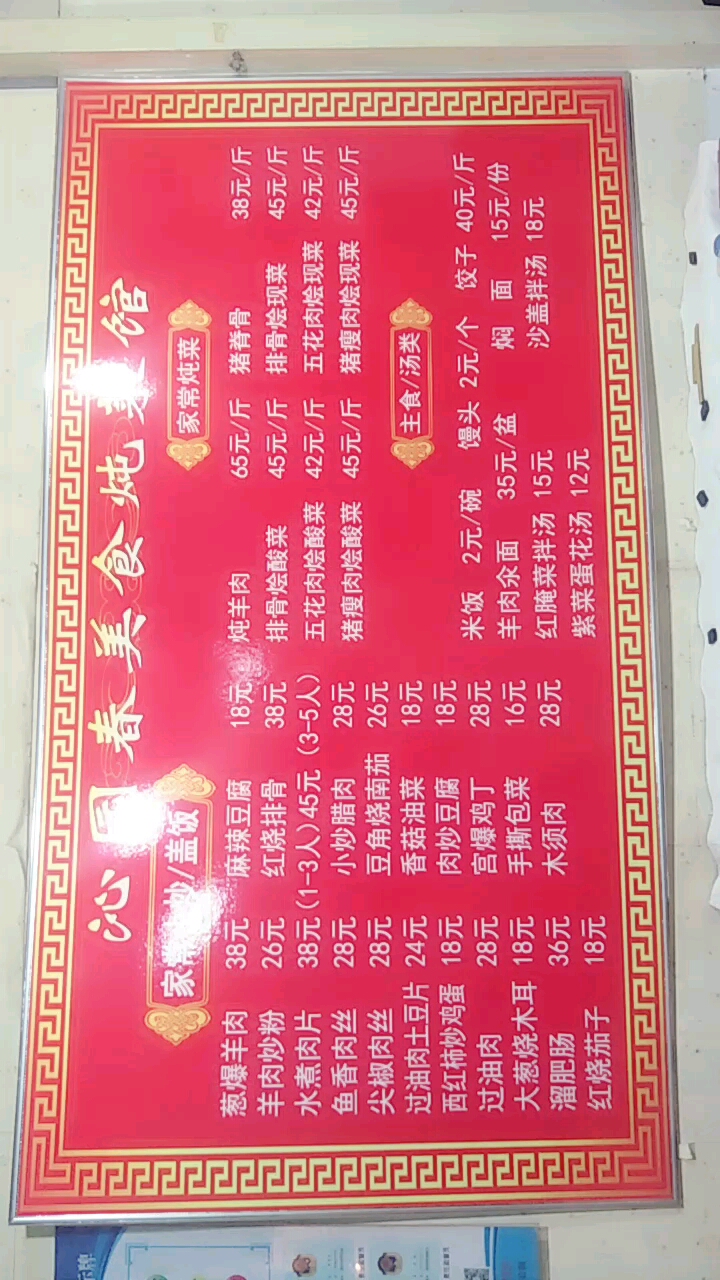 沁园春美食炖菜馆
家常小炒/盖饭
葱爆羊肉 38元 麻辣豆腐 18元
羊肉炒粉 26元 红烧排骨 38元
水煮肉片 38元(1-3人)45元(3-5人)
鱼香肉丝 28元 小炒腊肉 28元
尖椒肉丝 28元 豆角烧南茄 26元
过油肉土豆片 24元 香菇油菜 18元
西红柿炒鸡蛋 18元 肉炒豆腐 18元
过油肉 28元 宫爆鸡丁 28元
大葱烧木耳 18元 手撕包菜 16元
溜肥肠 36元 木须肉 28元
红烧茄子 18元
家常炖菜
炖羊肉 65元/斤 猪脊骨 38元/斤
排骨烩酸菜 45元/斤 排骨烩现菜 45元/斤
五花肉烩酸菜 42元/斤 五花肉烩现菜 42元/斤
猪瘦肉烩酸菜 45元/斤 猪瘦肉烩现菜 45元/斤
主食/汤类
米饭 2元/碗 馒头 2元/个 饺子 40元/斤
羊肉汆面 35元/盆 焖面 15元/份
红腌菜拌汤 15元 沙盖拌汤 18元
紫菜蛋花汤 12元